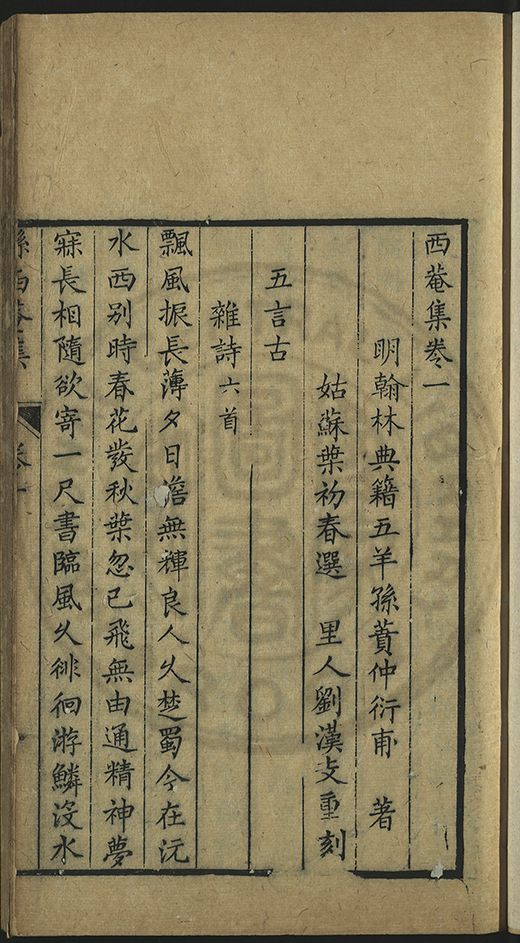 西菴集卷一
明翰林典籍五羊孫蕡仲衍甫 著
姑蘇葉初春選 里人劉漢㕛重刻
五言古
雜詩六首
飄風振長薄夕日澹無輝良人久楚蜀今在沅
水西别時春花發秋葉忽已飛無由通精神夢
寐長相隨欲寄一尺書臨風久徘徊游鱗没水
孫西菴集 卷一